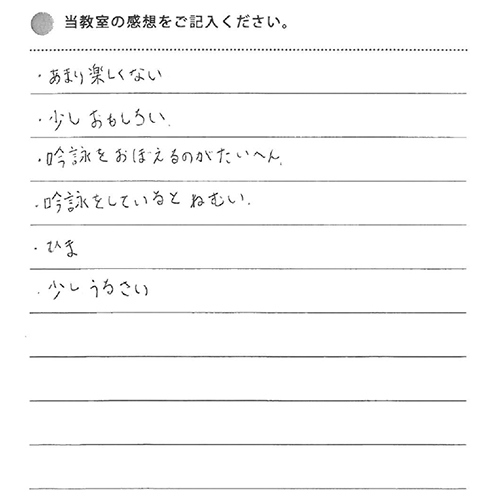 当教室の感想をご記入ください。
・あまり楽しくない
・少しおもしろい.
・吟詠をおぼえるのがたいへん.
・吟詠をしているとねむい.
・ひま
・少しうるさい